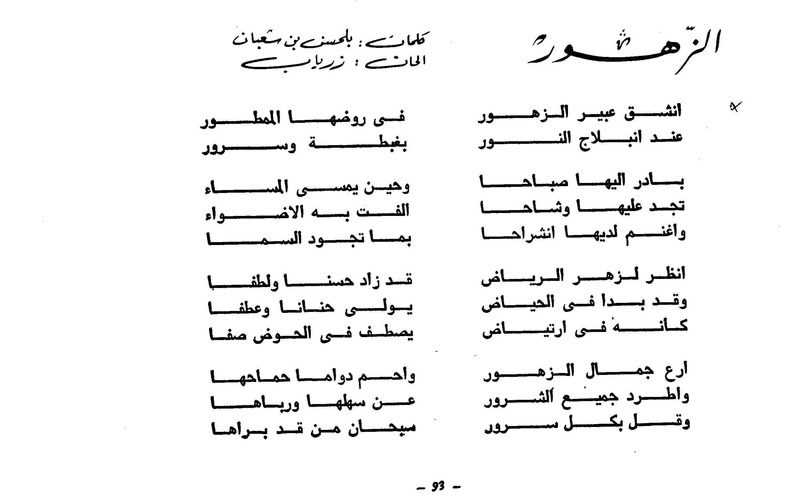 الزّهور
كلمات : بلحسن بن شعبان
الحان : زرياب
انشق عبير الزهور في روضها الممطور
عند انبلاج النور بغبطة وسرور
بادر اليها صباحا وحين يمسى المساء
تجد عليها وشاحا الفت به الاضواء
واغنم لديها انشراحا بما تجود السما
انظر لزهر الرياض قد زاد حسنا ولطفا
وقد بدا فى الحياض يولى حنانا وعطفا
كانه فى ارتياض يصطف فى الحوض صفا
ارع جمال الزهور واحم دواما حماحها
واطرد جميع الشرور عن سهلها ورباها
وقل بكل سرور سبحان من قد براها
- 93 -